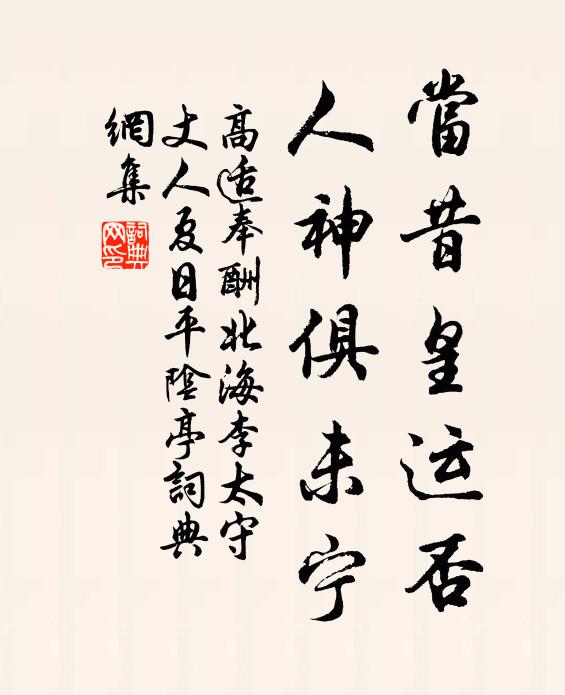 當昔皇运否
人神俱未宁
高适奉酬北海李太守
丈人夏日平陰亭詞典
網集
詞典
网印